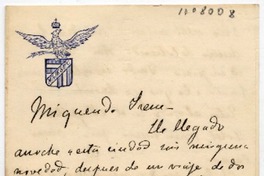 Mi querida Irene –
He llegado
anoche a esta ciudad sin ninguna
novedad, despues de un viaje de dos